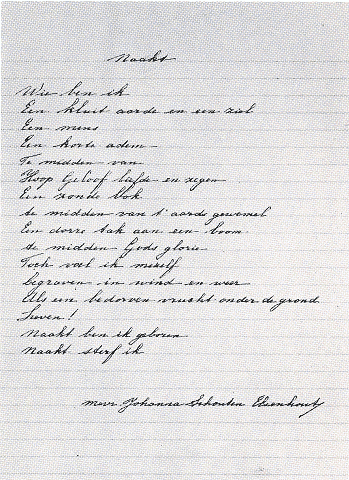 Naakt
Wie ben ik
Een kluit aarde en een ziel
Een mens
Een korte adem
Te midden van
Hoop Geloof liefde en zegen
Een zonde bok
te midden van t' aards gewemel
Een dorre tak aan een boom
te midden Gods glorie
Toch voel ik mezelf
begraven in wind en weer
Als een bedorven vrucht onder de grond
Leven!
Naakt ben ik geboren
Naakt sterf ik
mevr Johanna Schouten Elsenhout